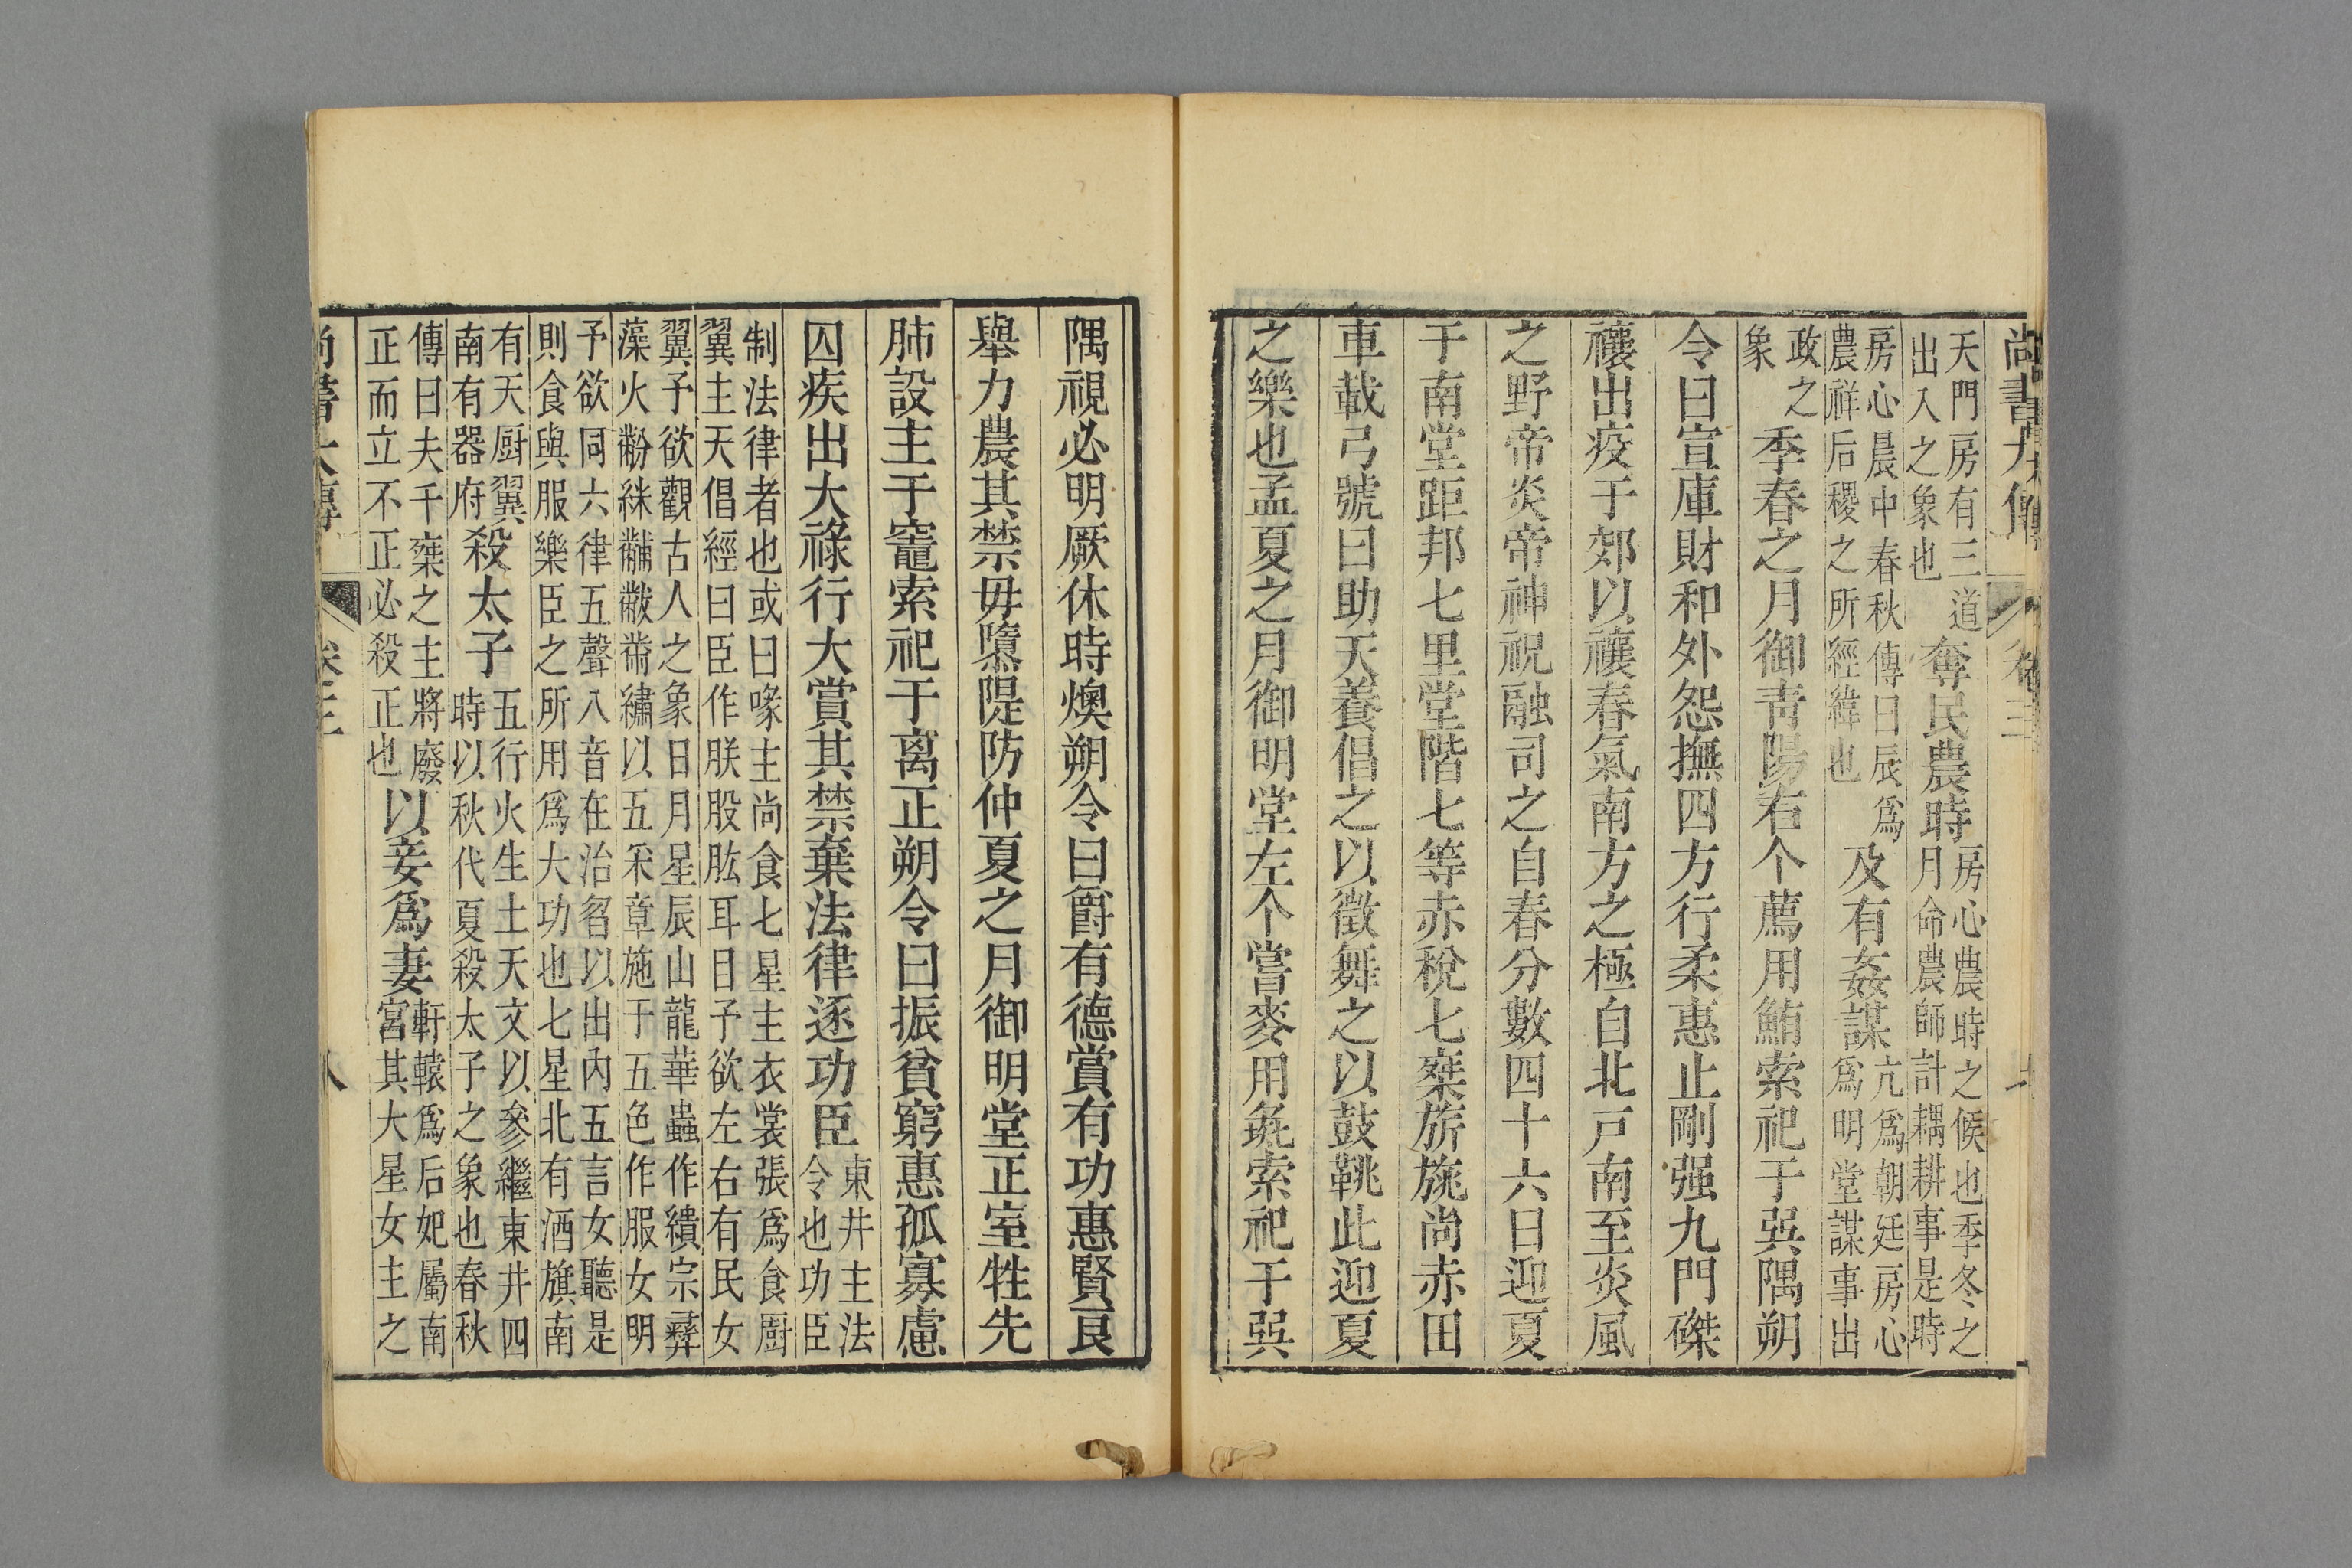 尚書大傳 卷三 七
天門房有三道
出入之象也
奪民農時
房心農時之候也季冬之
月命農師計耦耕事是時
房心晨中春秋傳曰辰爲
農祥后稷之所經緯也
及有姦謀
亢爲朝廷房心
爲明堂謀事出
政之
象
季春之月御靑陽右个薦用鮪索祀于㢲隅朔
令曰宣庫財和外怨撫四方行柔惠止剛强九門磔
禳出疫于郊以禳春氣南方之極自北戸南至炎風
之野帝炎帝神祝融司之自春分數四十六日迎夏
于南堂距邦七里堂階七等赤稅七椉旂旄尚赤田
車載弓號曰助天養倡之以徵舞之以鼓鞉此迎夏
之樂也孟夏之月御明堂左个嘗麥用毚索祀于㢲
隅視必明厥休時燠朔令曰爵有德賞有功惠賢良
舉力農其禁毋隳隄防仲夏之月御明堂正室牲先
肺設主于竈索祀于离正朔令曰振貧窮惠孤寡慮
囚疾出大祿行大賞其禁棄法律逐功臣
東井主法
令也功臣
制法律者也或曰喙主尚食七星主衣裳張爲食厨
翼主天倡經曰臣作朕股肱耳目予欲左右有民女
翼予欲觀古人之象日月星辰山龍華蟲作繢宗彝
藻火黺絑黼黻黹繡以五采章施于五色作服女明
予欲同六律五聲八音在治㕯以出內五言女聽是
則食與服樂臣之所用爲大功也七星北有酒旗南
有天厨翼
南有器府
殺太子
五行火生土天文以參繼東井四
時以秋代夏殺太子之象也春秋
傳曰夫千椉之主將廢
正而立不正必殺正也
以妾爲妻
軒轅爲后妃屬南
宮其大星女主之
尚書大傳 卷三 八